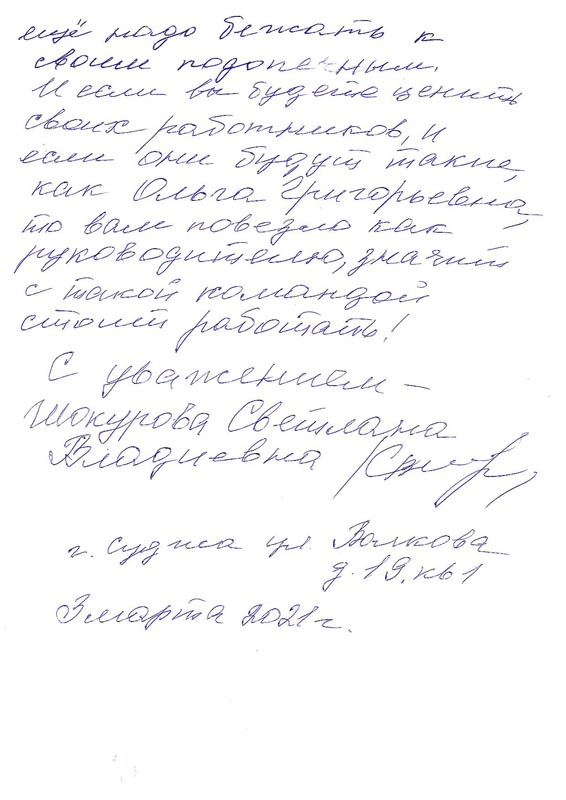 ещё надо бежать к
своим подопечным.
И если вы будете ценить
своих работников, и
если они будут такие,
как Ольга Григорьевна,
то вам повезло как
руководителю, значит
с такой командой
стоит работать!
С уважением –
Шокурова Светлана
Владиевна
г. Суджа ул. Волкова
д. 19, кв 1
3 марта 2021 г.